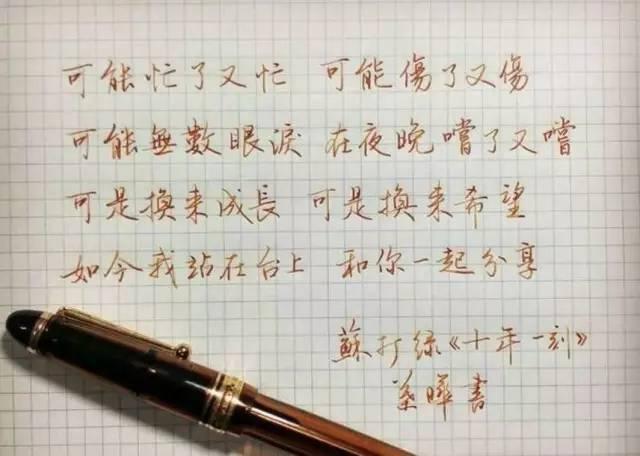 可能忙了又忙 可能傷了又傷
可能無數眼淚 在夜晚嚐了又嚐
可是換来成長 可是換来希望
如今我站在台上 和你一起分享
蘇打綠《十年一刻》
葉曄書